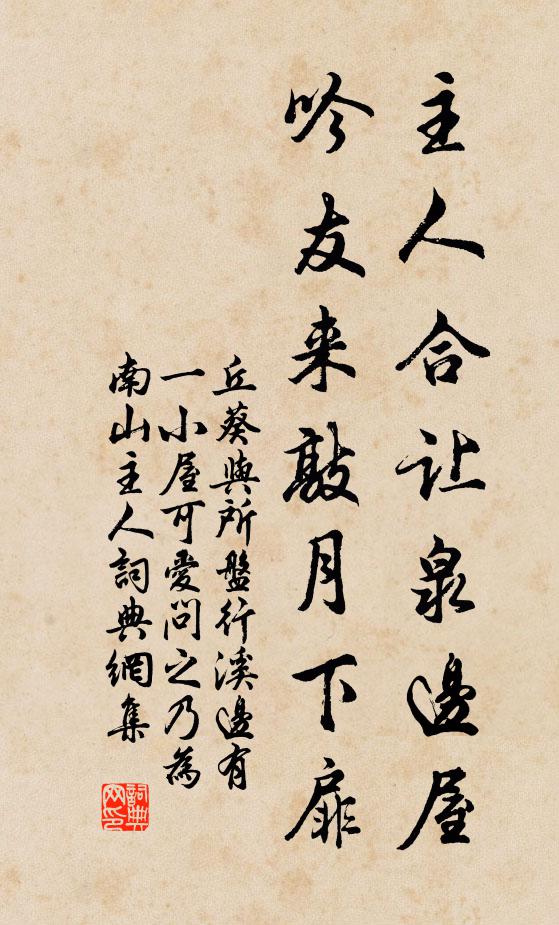 主人合让泉邊屋
吟友来敲月下扉
丘葵與所盤行溪邊有
一小屋可愛問之乃為
南山主人詞典網集
詞典网印